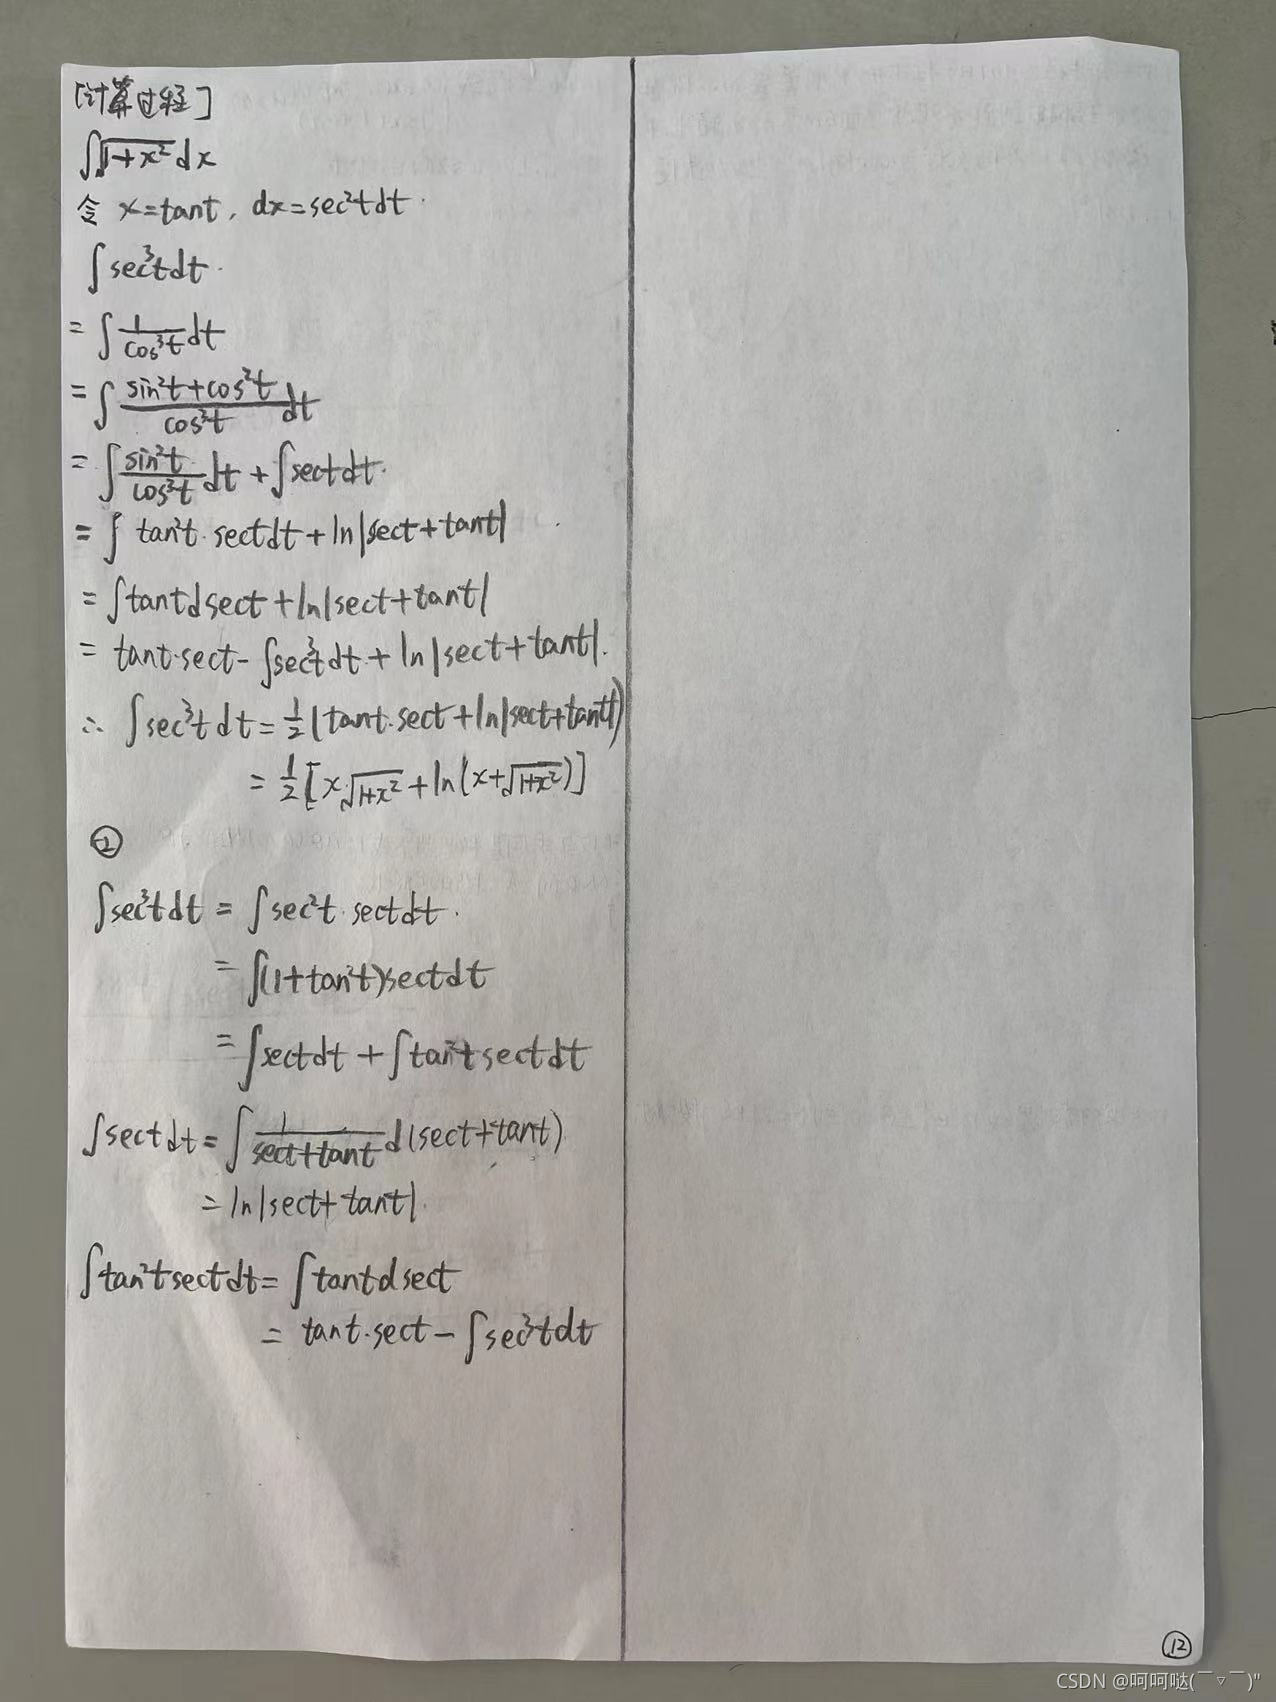 [计算过程]
∫√1+x² dx
令 x=tant, dx=sec²tdt.
∫sec³tdt.
= ∫ 1/cos³t dt
= ∫ (sin²t+cos²t)/cos³t dt
= ∫ sin²t/cos³t dt + ∫sectdt.
= ∫ tan²t·sectdt+ln|sect+tant|
= ∫tantdsect+ln|sect+tant|
= tant·sect-∫sec³tdt+ln|sect+tant|.
∴ ∫sec³tdt=½(tant·sect+ln|sect+tant|)
= ½[x√1+x²+ln(x+√1+x²)]
②
∫sec³tdt = ∫sec²t·sectdt.
= ∫(1+tan²t)sectdt
= ∫sectdt+∫tan²tsectdt
∫sectdt= ∫ 1/(sect+tant) d(sect+tant)
= ln|sect+tant|.
∫tan²tsectdt= ∫tantdsect
= tant·sect-∫sec³tdt
⑫
CSDN @呵呵哒(￣▽￣)"